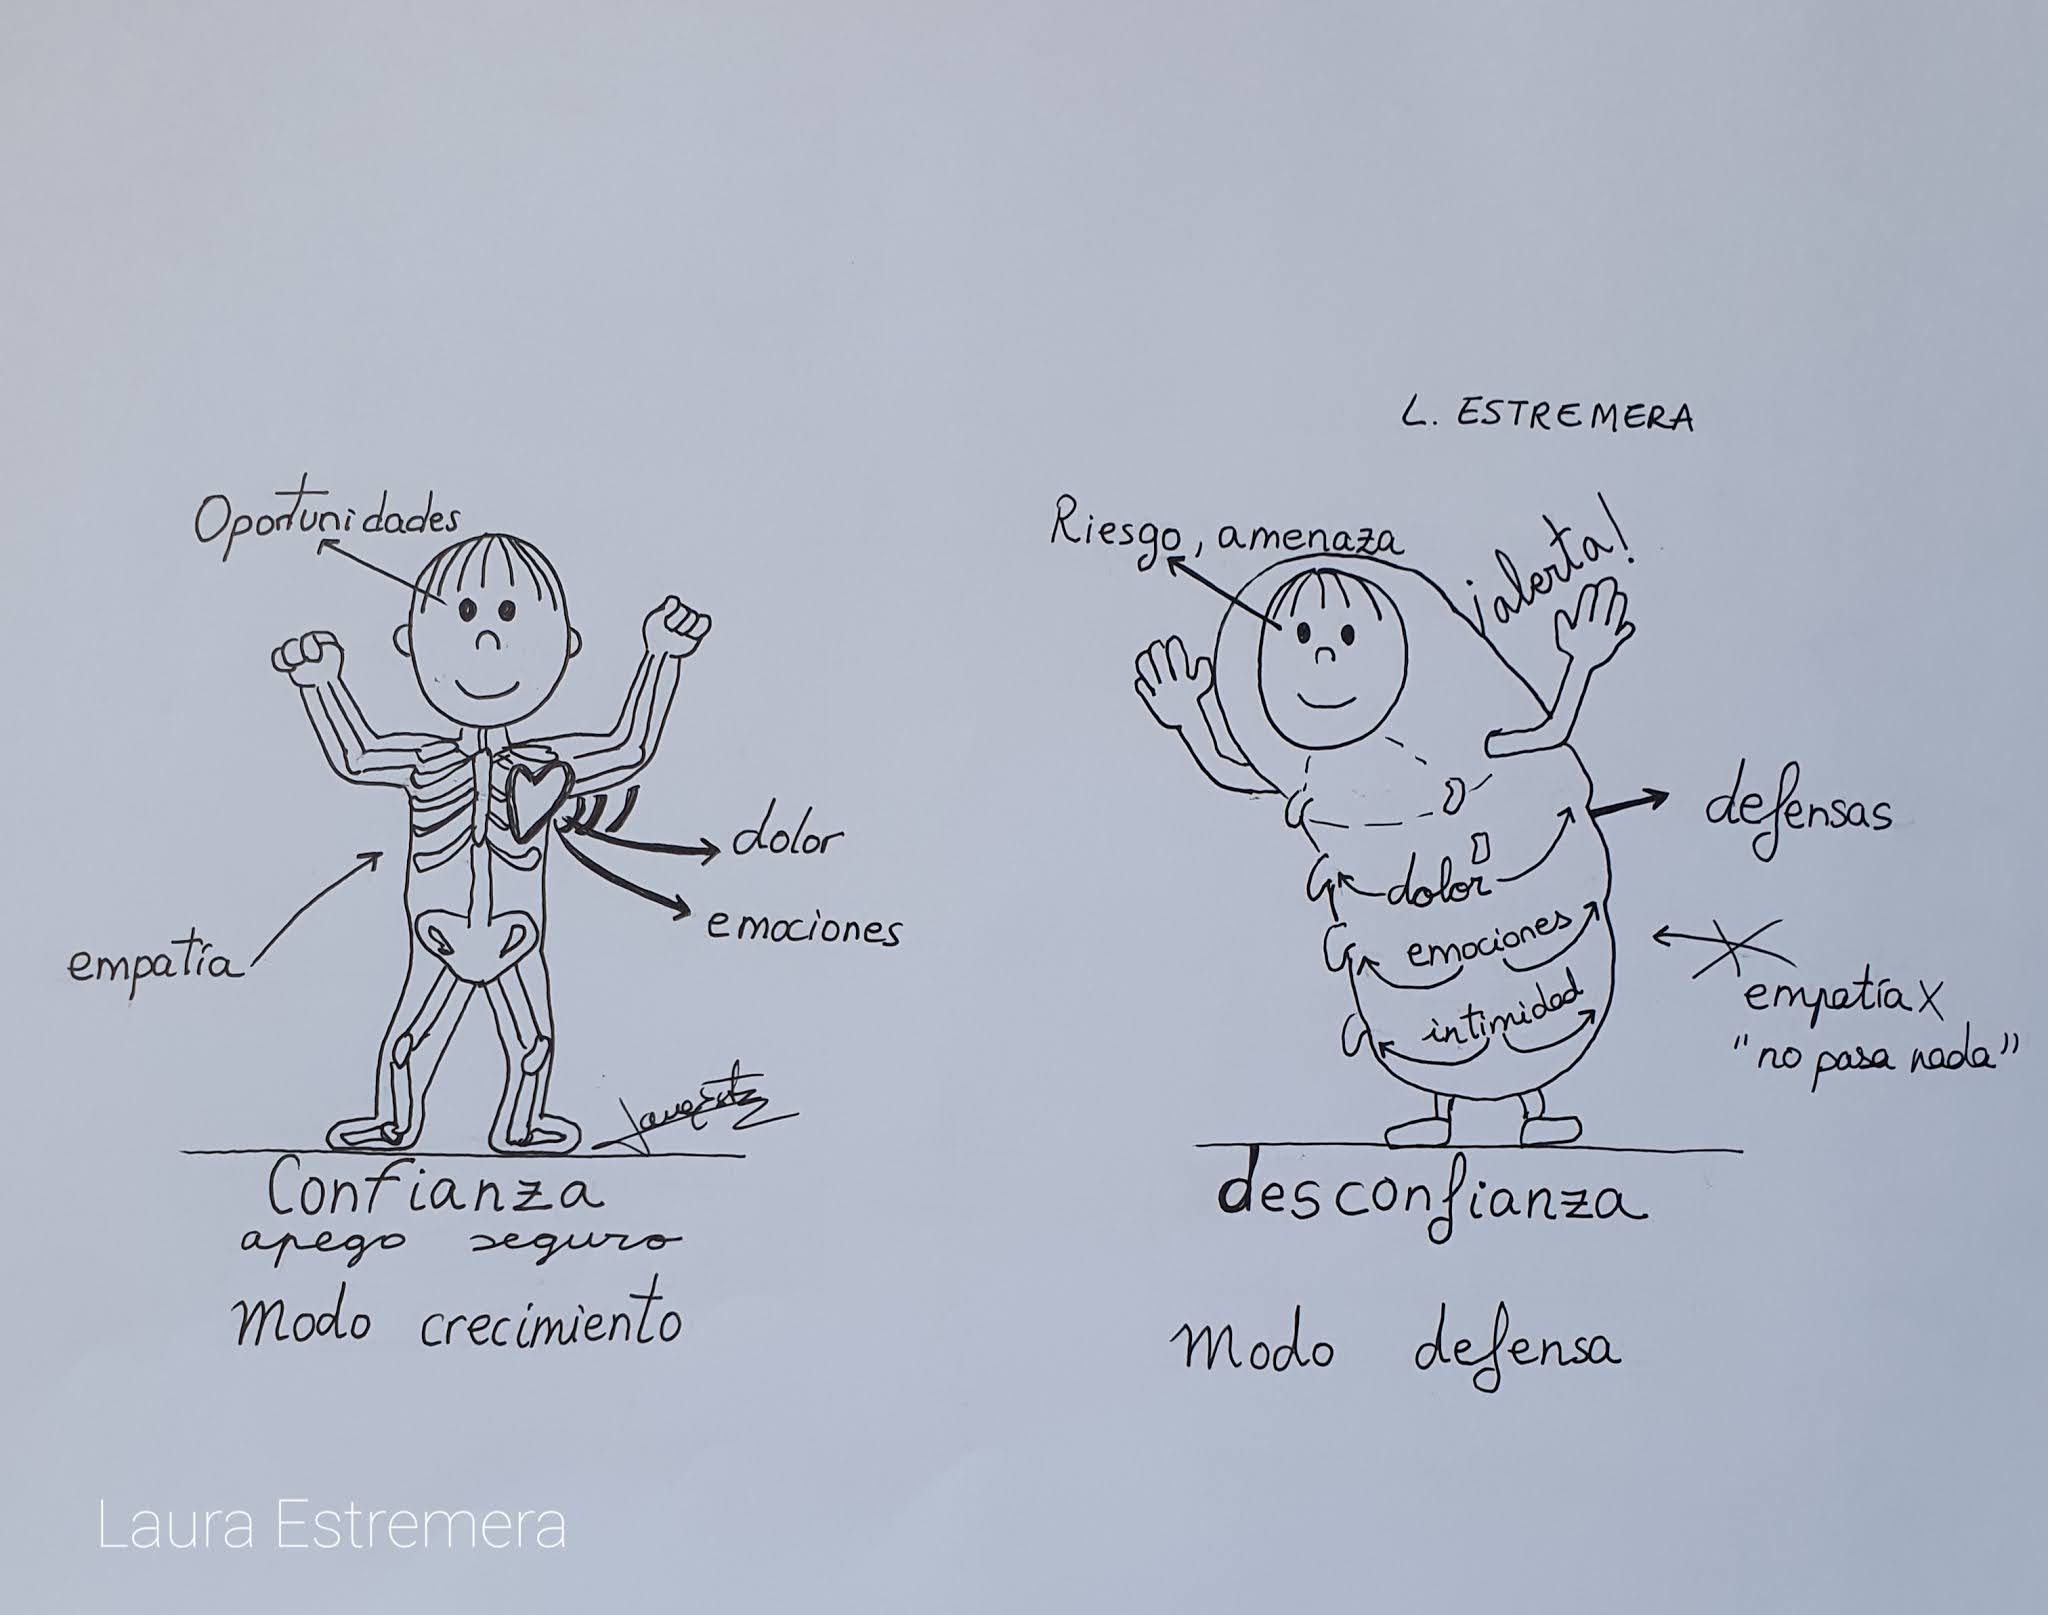 L. ESTREMERA
Oportunidades
dolor
emociones
empatía
Confianza
apego seguro
Modo crecimiento
Riesgo, amenaza
¡alerta!
defensas
dolor
emociones
intimidad
empatía X
"no pasa nada"
desconfianza
Modo defensa
Laura Estremera